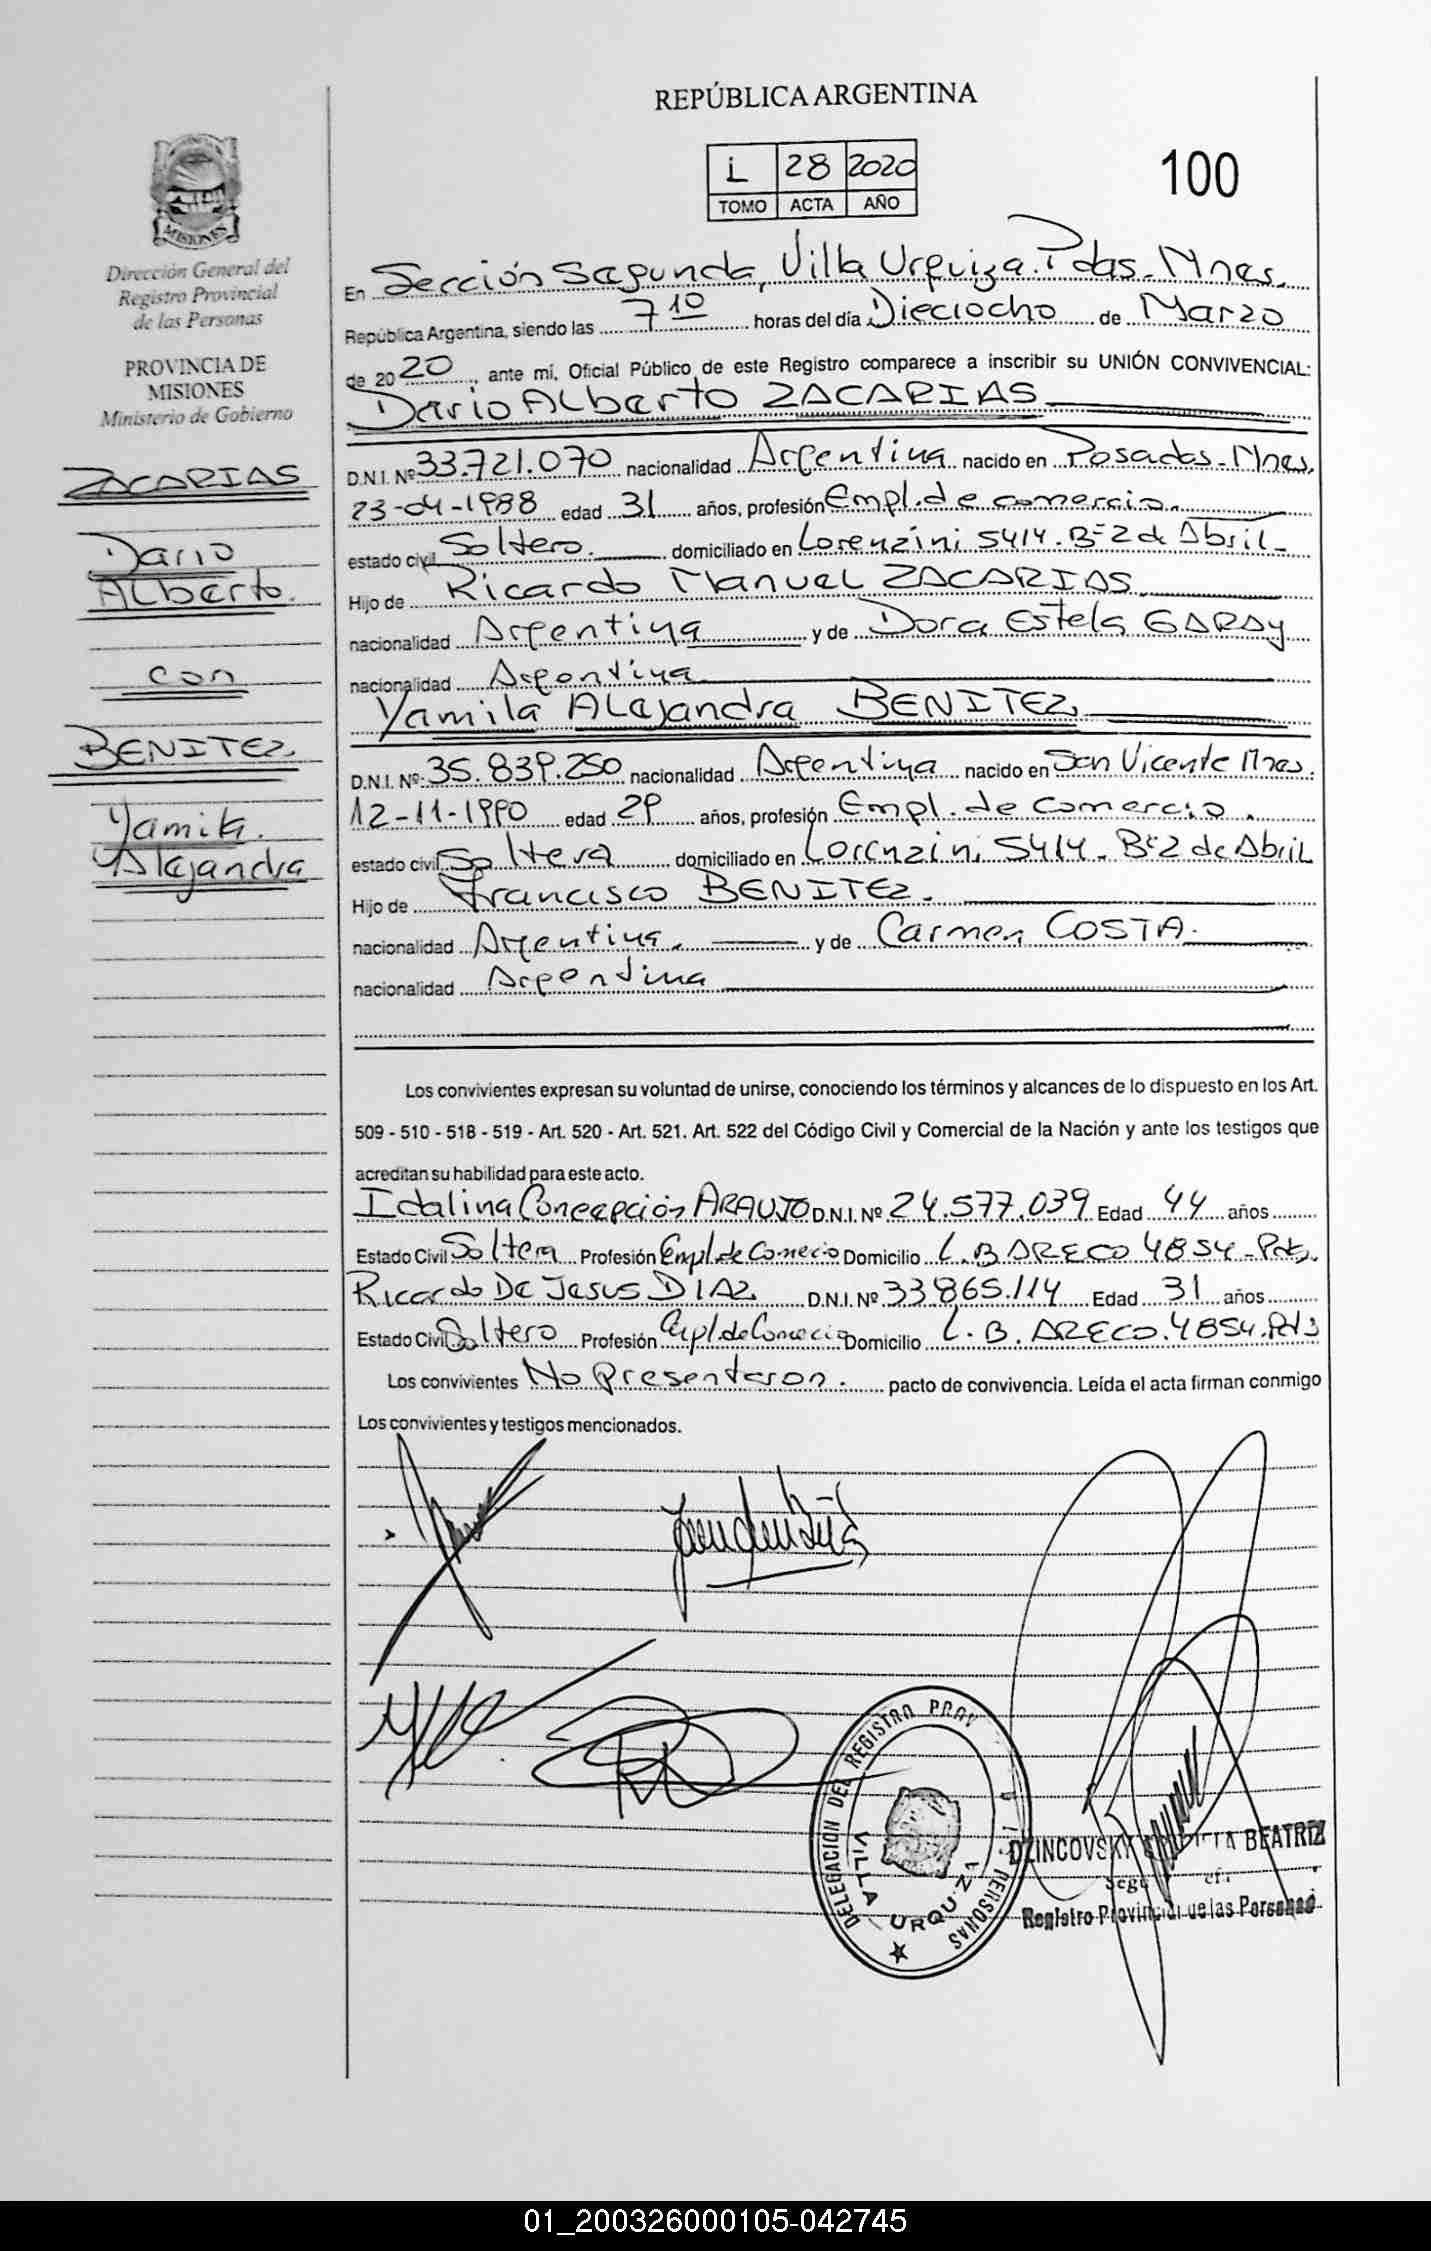 REPÚBLICA ARGENTINA
1 28 2020
TOMO ACTA AÑO
100
MISIONES
Dirección General del
Registro Provincial
de las Personas
PROVINCIA DE
MISIONES
Ministerio de Gobierno
ZACARIAS
Dario
Alberto.
con
BENITEZ
Yamila
Alejandra
En Sección Segunda, Villa Urquiza. Pdas. Mnes.
República Argentina, siendo las 7 10 horas del día Dieciocho de Marzo
de 2020, ante mí, Oficial Público de este Registro comparece a inscribir su UNIÓN CONVIVENCIAL:
Dario Alberto ZACARIAS
D.N.I. Nº 33.721.070 nacionalidad Argentina nacido en Posadas-Mnes.
23-04-1988 edad 31 años, profesión Empl. de comercio.
estado civil Soltero. domiciliado en Lorenzini 5414. Bº 2 de Abril-
Hijo de Ricardo Manuel ZACARIAS.
nacionalidad Argentina y de Dora Estela GARAY
nacionalidad Argentina
Yamila Alejandra BENITEZ
D.N.I. Nº: 35.839.250 nacionalidad Argentina nacido en San Vicente Mnes.
12-11-1990 edad 29 años, profesión Empl. de Comercio.
estado civil Soltera domiciliado en Lorenzini 5414. Bº 2 de Abril
Hijo de Francisco BENITEZ.
nacionalidad Argentina. y de Carmen COSTA.
nacionalidad Argentina
Los convivientes expresan su voluntad de unirse, conociendo los términos y alcances de lo dispuesto en los Art.
509 - 510 - 518 - 519 - Art. 520 - Art. 521. Art. 522 del Código Civil y Comercial de la Nación y ante los testigos que
acreditan su habilidad para este acto.
Idalina Concepción ARAUJO D.N.I. Nº 24.577.039 Edad 44 años
Estado Civil Soltera Profesión Empl. de Comercio Domicilio L. B ARECO 4854-Pds.
Ricardo De Jesus DIAZ D.N.I. Nº 33.865.114 Edad 31 años
Estado Civil Soltero Profesión Empl. de Comercio Domicilio L. B. ARECO. 4854. Pds
Los convivientes No Presentaron. pacto de convivencia. Leída el acta firman conmigo
Los convivientes y testigos mencionados.
DELEGACION DEL REGISTRO PROV PERSONAS
VILLA URQUIZA
DZINCOVSKY BEATRIZ
Registro Provincial de las Personas
01_200326000105-042745